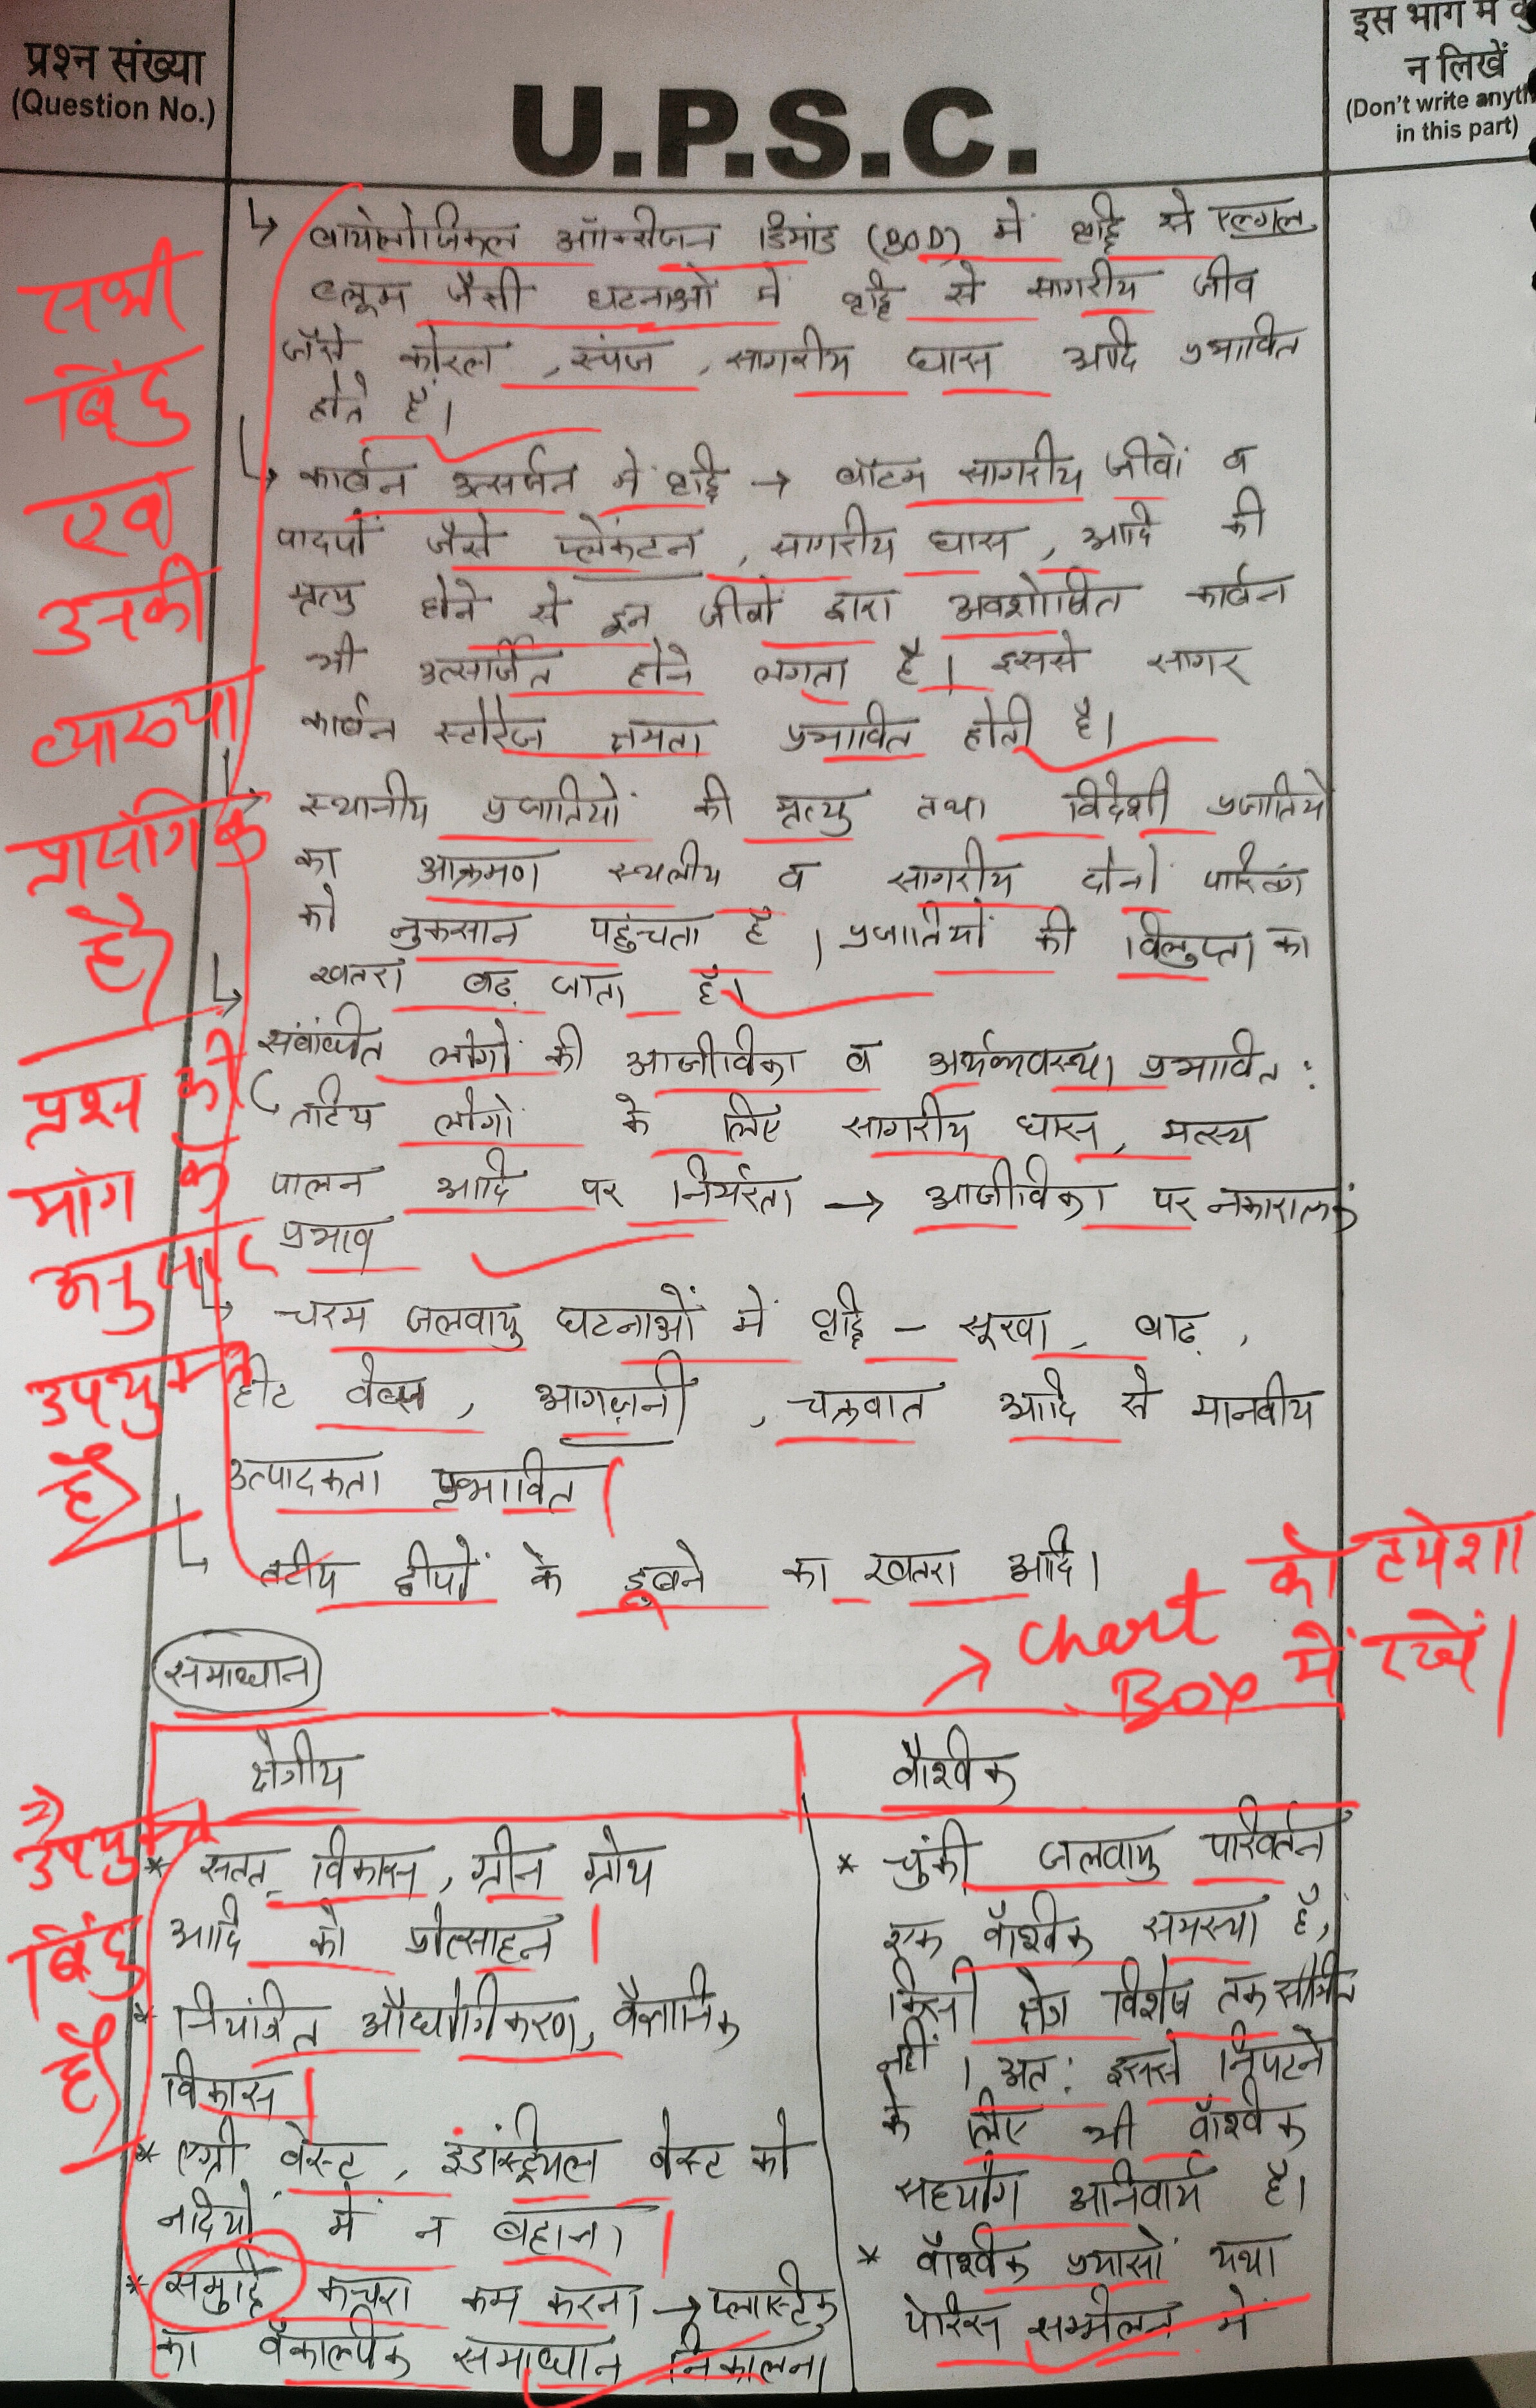 प्रश्न संख्या
(Question No.)
U.P.S.C.
इस भाग में कु
न लिखें
(Don't write anyth
in this part)
↳ बायोलोजिकल ऑक्सीजन डिमांड (BOD) में वृद्धि से एल्गल
ब्लूम जैसी घटनाओं में वृद्धि से सागरीय जीव
जैसे कोरल, स्पंज, सागरीय घास आदि प्रभावित
होते हैं।
↳ कार्बन उत्सर्जन में वृद्धि → बॉटम सागरीय जीवों व
पादपों जैसे प्लेंकटन, सागरीय घास, आदि की
मृत्यु होने से इन जीवों द्वारा अवशोषित कार्बन
भी उत्सर्जित होने लगता है। इससे सागर
कार्बन स्टोरेज क्षमता प्रभावित होती है।
↳ स्थानीय प्रजातियों की मृत्यु तथा विदेशी प्रजातियों
का आक्रमण स्थलीय व सागरीय दोनों पारितंत्र
को नुकसान पहुंचता है। प्रजातियों की विलुप्ता का
खतरा बढ़ जाता है।
↳ संबंधित लोगों की आजीविका व अर्थव्यवस्था प्रभावित:
तटिय लोगों के लिए सागरीय घास, मत्स्य
पालन आदि पर निर्भरता → आजीविका पर नकारात्मक
प्रभाव
↳ चरम जलवायु घटनाओं में वृद्धि – सूखा, बाढ़,
हीट वेव्स, आगज़नी, चक्रवात आदि से मानवीय
उत्पादकता प्रभावित।
↳ तटीय द्वीपों के डूबने का खतरा आदि।
सभी
बिंदु
एवं
उनकी
व्याख्या
प्रासंगिक
है।
प्रश्न की
मांग के
अनुसार
उपयुक्त
है।
→ Chart को हमेशा
Box में रखें।
समाधान
क्षेत्रीय
* सतत् विकास, ग्रीन ग्रोथ
आदि को प्रोत्साहन।
* नियंत्रित औद्योगिकरण, वैज्ञानिक
विकास।
* एग्री वेस्ट, इंडस्ट्रियल वेस्ट को
नदियों में न बहाना।
* समुद्रि कचरा कम करना → प्लास्टिक
का वैकल्पिक समाधान निकालना
वैश्विक
* चुंकी जलवायु परिवर्तन
एक वैश्विक समस्या है,
किसी क्षेत्र विशेष तक सीमित
नहीं। अत: इससे निपटने
के लिए भी वैश्विक
सहयोग अनिवार्य है।
* वैश्विक प्रयासों यथा
पेरिस सम्मेलन में
उपयुक्त
बिंदु
है।